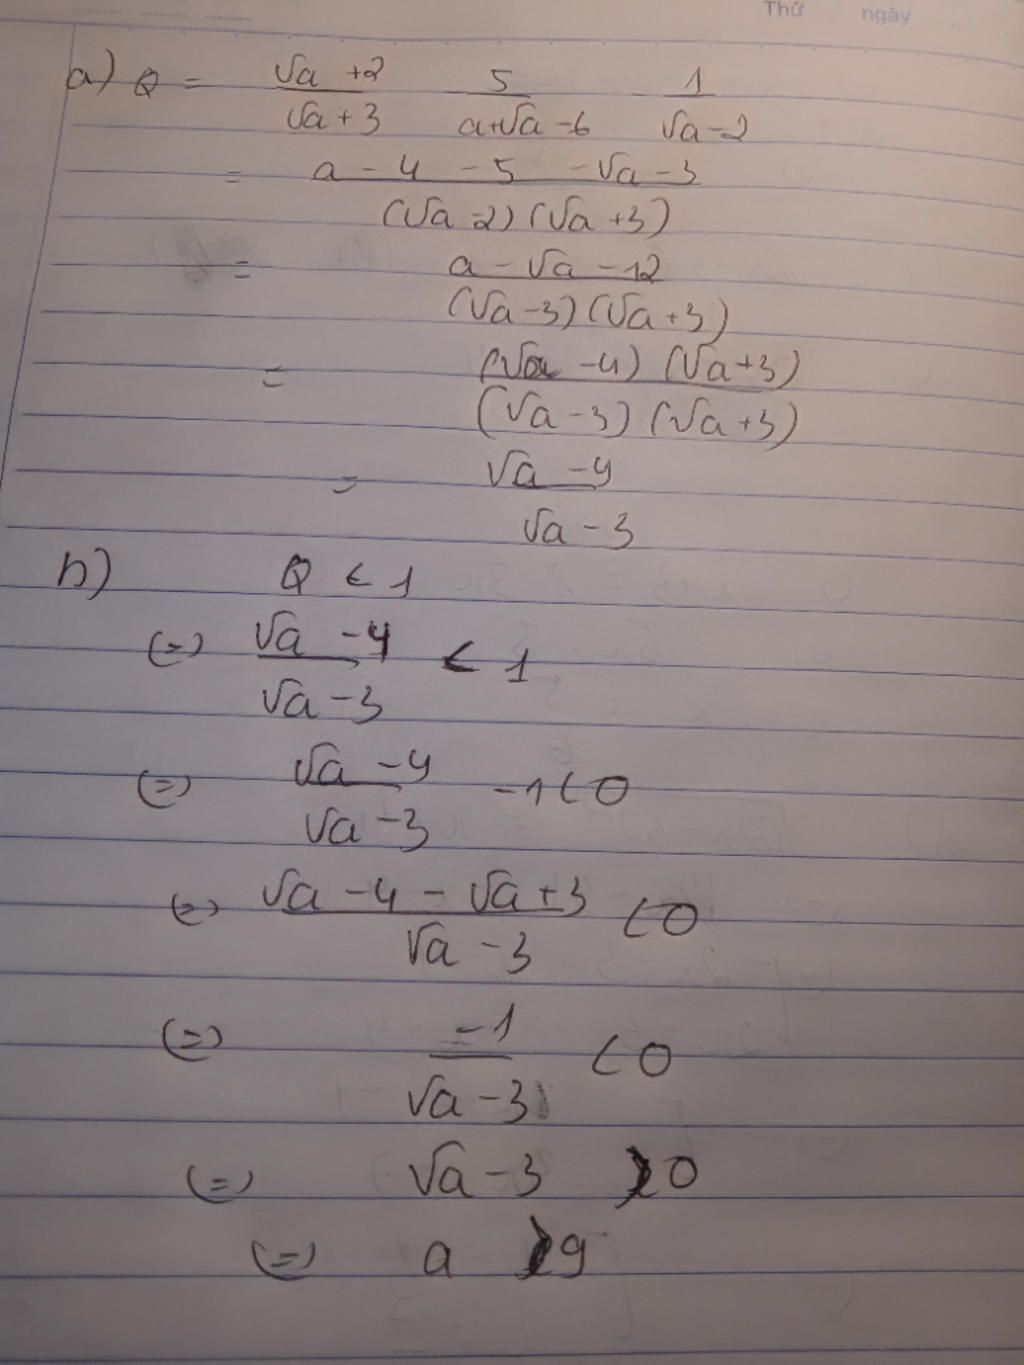 Thứ ngày
a) Q = (√a +2)/(√a + 3) 5/(a+√a -6) 1/(√a -2)
= (a - 4 - 5 - √a - 3)/((√a -2) (√a +3))
= (a - √a - 12)/((√a - 3) (√a +3))
= ((√a - 4) (√a +3))/((√a - 3) (√a +3))
= (√a - 4)/(√a - 3)
b) Q < 1
(=) (√a - 4)/(√a - 3) < 1
(=) (√a - 4)/(√a - 3) -1 < 0
(=) (√a - 4 - √a + 3)/(√a - 3) < 0
(=) (-1)/(√a - 3) < 0
(=) √a - 3 > 0
(=) a > 9